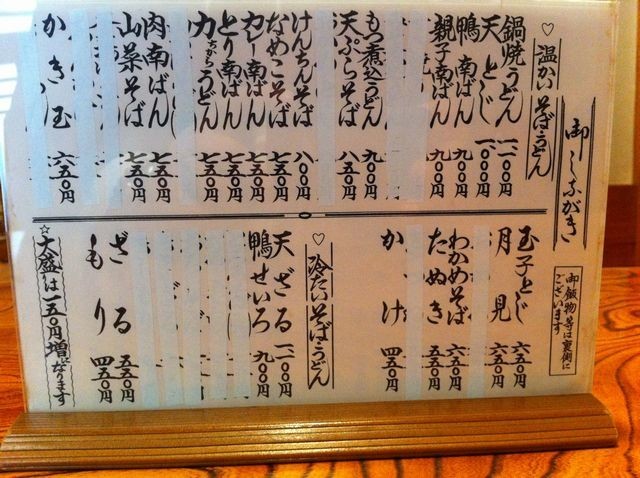 御しながき
御飯物等は裏側に
ございます
♡温かいそばうどん
鍋焼うどん 一一〇〇円
天とじ 一〇〇〇円
鴨南ばん 九〇〇円
親子南ばん 九〇〇円
もつ煮込うどん 九〇〇円
天ぷらそば 八五〇円
けんちんそば 八〇〇円
なめこそば 七五〇円
カレー南ばん 七五〇円
とり南ばん 七五〇円
力うどん 七五〇円
肉南ばん 七五〇円
山菜そば 七五〇円
かき玉 六五〇円
玉子とじ 六五〇円
月見 六五〇円
わかめそば 六五〇円
たぬき 五五〇円
かけ 四五〇円
♡冷たいそばうどん
天ざる 一一〇〇円
鴨せいろ 九〇〇円
ざる 五五〇円
もり 四五〇円
☆大盛は一五〇円増になります